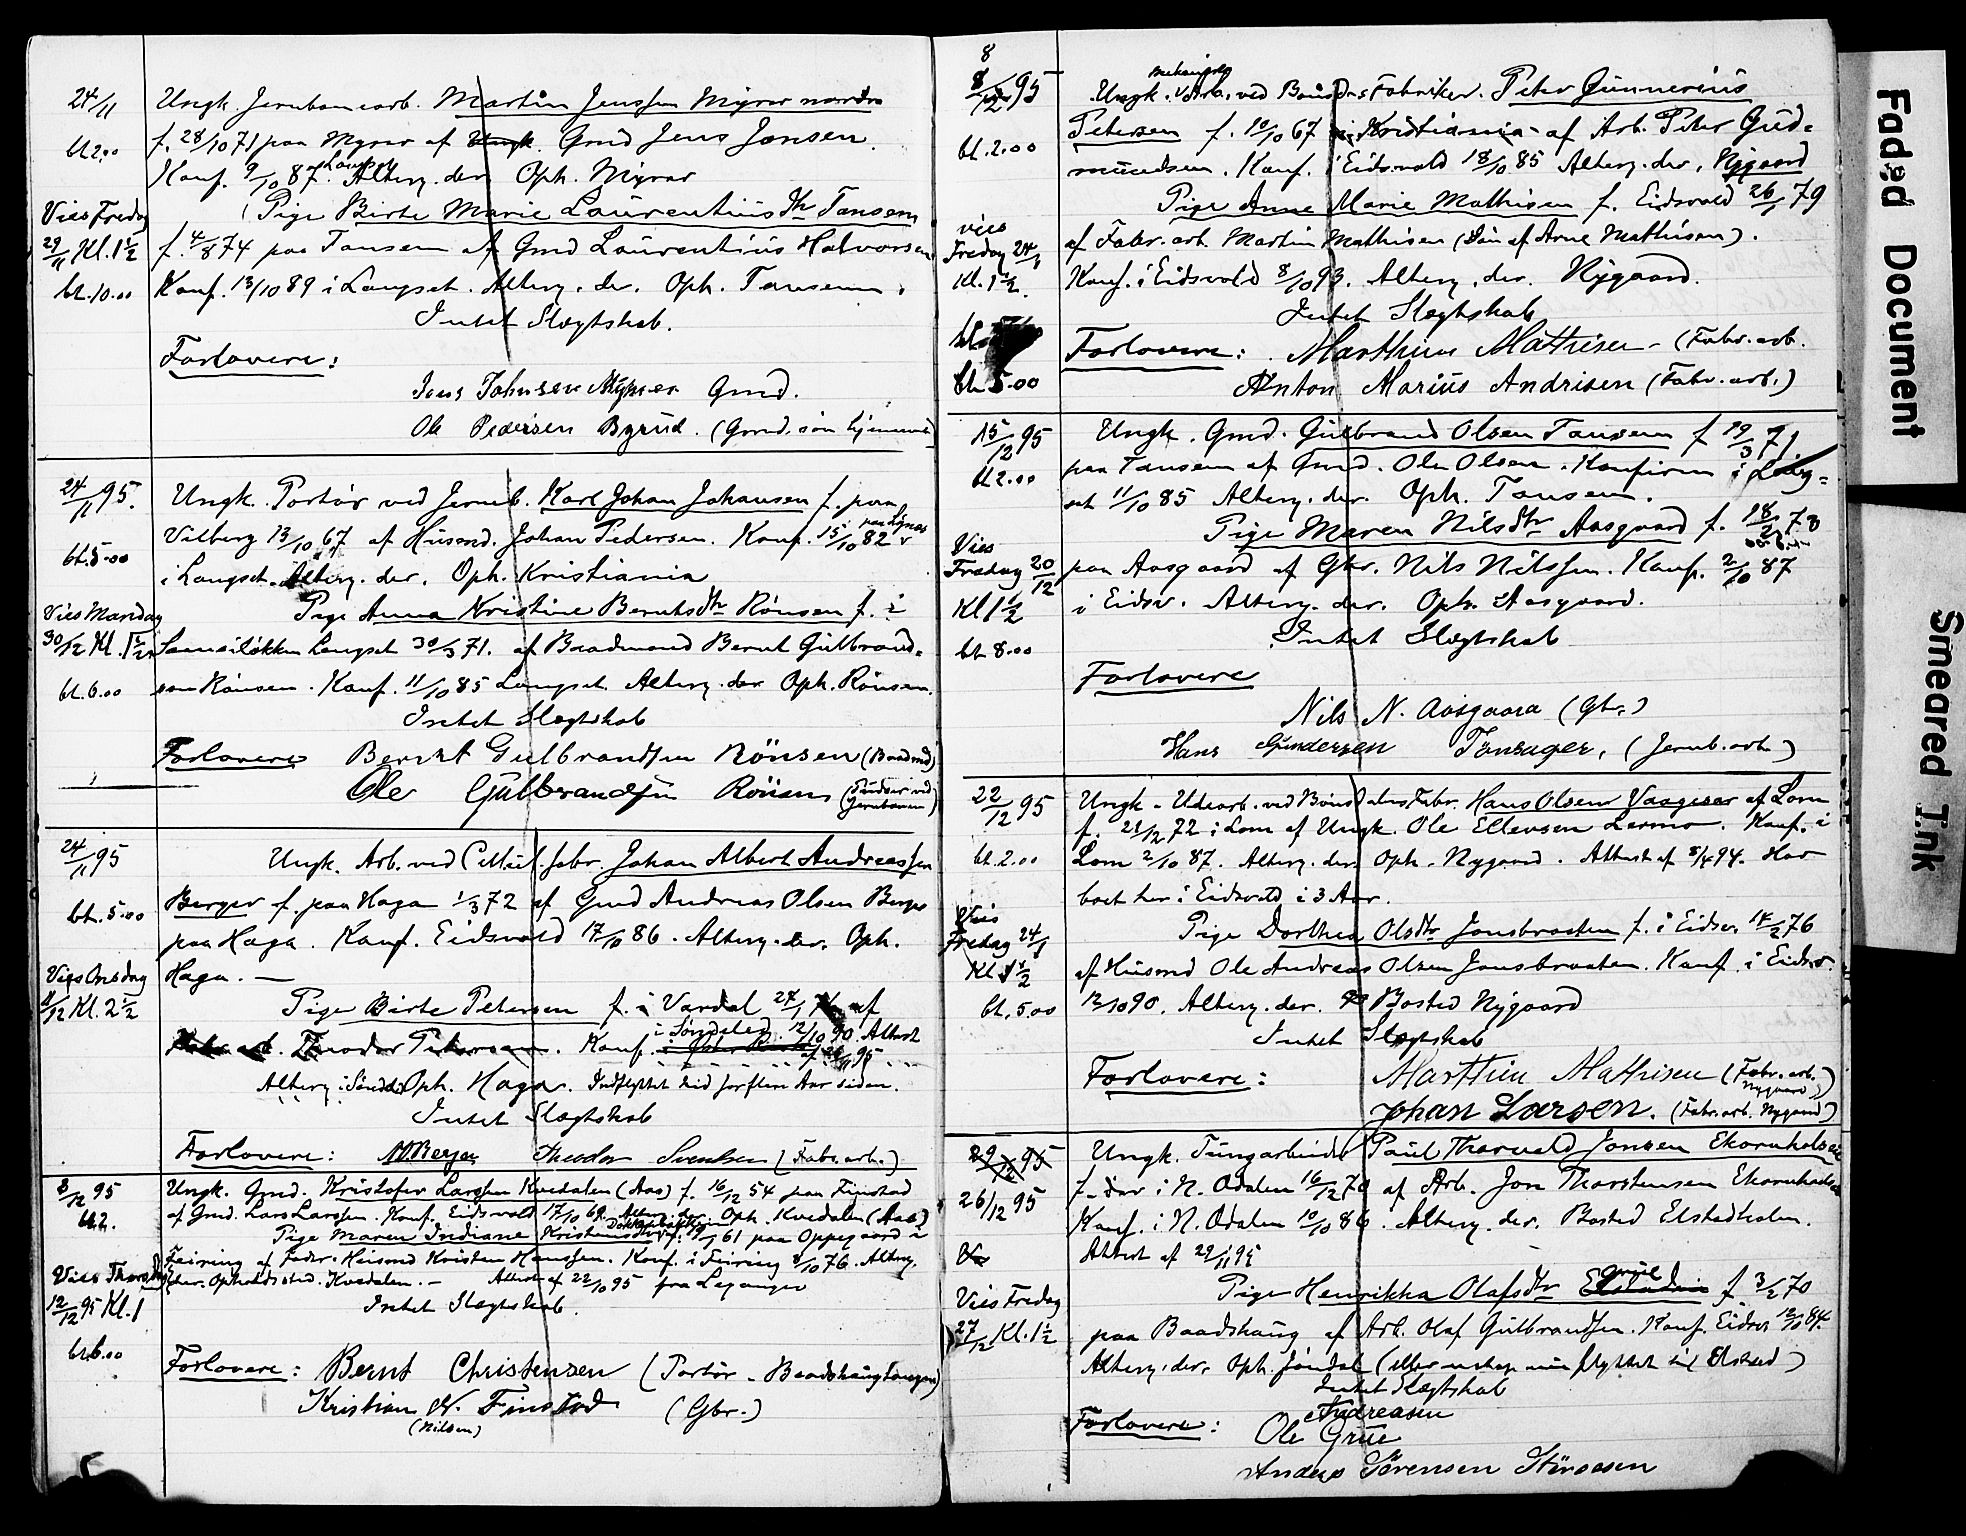 24/11
Ungk. Jernbanearb. Martin Jenssen Myrer nordre
bt. 2.00
f. 28/10 71 paa Myrer af Gmd Jens Jonsen.
Konf. 9/10 87 Langset Alterg. der Oph. Myrer
Vies Fredag
Pige Birte Marie Laurentiusdtr Tansem
29/11 Kl. 1½
f. 4/8 74 paa Tansem af Gmd Laurentius Halvorsen
bt. 10.00
Konf. 13/10 89 i Langset. Alterg. der. Oph. Tansem.
Intet Slægtskab.
Forlovere:
Jens Johnsen Myrer Gmd.
Ole Pedersen Byrud. (Gmd. søn hjemme)
24/11 95.
Ungk. Portør ved Jernb. Karl Johan Johansen f. paa
Vilberg 13/10 67 af Husmd. Johan Pedersen. Konf. 15/10 82
bt. 5.00
i Langset. Alterg. der. Oph. Kristiania
Vies Mandag
Pige Anna Kristine Berntsdtr Rönsen f. i
30/12 Kl. 1½
Langset 30/3 71. af Baadmand Bernt Gulbrand-
bt. 6.00
sen Rönsen. Konf. 11/10 85 Langset Alterg. der Oph. Rönsen.
Intet Slægtskab
Forlovere Bernt Gulbrandsen Rönsen (Baadmd)
Ole Gulbrandsen Rönsen (Pudser ved Jernbanen)
24/11 95
Ungk. Arb. ved Cellul. fabr. Johan Albert Andreassen
bt. 5.00
Berger f. paa Haga 1/3 72 af Gmd Andreas Olsen Berger
paa Haga. Konf. Eidsvold 17/10 86. Alterg. der. Oph.
Vies Onsdag
Haga. —
11/12 Kl. 2½
Pige Birte Petersen f. i Vardal 24/1 af
i Søndeled 12/10 90. Attest
Fabr. arb. Theodor Petersen. Konf. af 26/11 95
Alterg. i Sönd. Oph. Haga. Indflyttet hid for flere Aar siden.
Intet Slægtskab
Forlovere: Berger Theodor Svendsen (Fabr. arb.)
8/12 95
Ungk. Gmd. Kristofer Larssen Kvedalen (Aas) f. 16/12 54 paa Finstad
bt. 2.
af Gmd. Lars Larssen. Konf. Eidsvold 17/10 69. Alterg. der. Oph. Kvedalen (Aas)
Pige Maren Indiane Kristensdtr f. 61 paa Oppegaard i
Feiring af Fader: Husmd Kristen Hanssen. Konf. i Feiring 8/10 76. Alterg.
Vies Thorsdag
der. Opholdssted. Kvedalen. — Attest af 22/10 95 fra
12/12 95 Kl. 1
Intet Slægtskab.
bt. 6.00
Forlovere: Bernt Christensen (Portør - Baadshaugtangen)
Kristian N. Finstad (Gbr.)
(Nilsen)
8
8/12 95
mekanisk
Ungk. Arb. ved Bönsdals Fabriker. Peter Gunnerius
Petersen f. 10/10 67 i Kristiania af Arb. Peter Gud-
bt. 2.00
mundsen. Konf. i Eidsvold 18/10 85 Alterg. der. Nygaard
Pige Anne Marie Mathisen f. Eidsvold 26/1 79
vies
Fredag 24/1
af Fabr. arb. Martin Mathisen (Søn af Arne Mathisen).
Kl. 1½.
Konf. i Eidsvold 8/10 93. Alterg. der. Nygaard.
Intet Slægtskab
Forlovere: Marthin Mathisen - (Fabr. arb.
bt. 5.00
Anton Marius Andrisen (Fabr. arb.)
15/12 95
Ungk. Gmd. Gulbrand Olsen Tansem f 19/3 71
bt. 2.00
paa Tansem af Gmd. Ole Olsen. Konfirm i Lang-
set 11/10 85 Alterg. der. Oph. Tansem.
Pige Maren Nilsdtr Aasgaard f. 18/2 73
Vies
Fredag 20/12
paa Aasgaard af Gbr. Nils Nilssen. Konf. 2/10 87
Kl 1½
i Eidsv. Alterg. der. Oph. Aasgaard.
Intet Slægtskab
bt 8.00
Forlovere
Nils N. Aasgaard (Gbr.)
Hans Gundersen Tønsager, (Jernb. arb)
22/12 95
Ungk. - Udearb. ved Bönsdalens Fabr. Hans Olsen Vaageser af Lom
f. 21/12 72 i Lom af Ungk. Ole Ellevsen Lermo. Konf. i
bt. 2.00
Lom 2/10 87. Alterg. der Oph. Nygaard. Attest af 8/4 94. Har
boet her i Eidsvold i 3 Aar.
Vies
Fredag 24/1
Pige Dorthea Olsdtr Jonsbraaten f. i Eidsv. 14/2 76
Kl. 1½
af Husmd Ole Andreas Olsen Jonsbraaten. Konf. i Eidsv.
bt. 5.00
12/10 90. Alterg. der. Bosted Nygaard
Intet Slægtskab
Forlovere: Marthin Mathisen (Fabr. arb. Nygaard)
Johan Larsen. (Fabr. arb. Nygaard)
29/12 95
Ungk. Tungarbeider Paul Thorvald Jonsen Ekornholmen
26/12 95
f. der i N. Odalen 16/12 70 af Arb. Jon Thorstensen Ekornholmen
Konf. i N. Odalen 10/10 86. Alterg. der. Bosted Elstadholen.
Attest af 29/11 95
Grue
Pige Henrikka Olafsdtr f 3/2 70
Vies Fredag
27/12 Kl. 1½
paa Baadshaug af Arb. Olaf Gulbrandsen. Konf. Eidsv 12/10 84.
Alterg. der. Oph. Jöndal (eller netop nu flyttet til Elstad)
Intet Slægtskab
Andreasen
Forlovere: Ole Grue
Anders Sörensen Störaasen
Faded Document
Smeared Ink